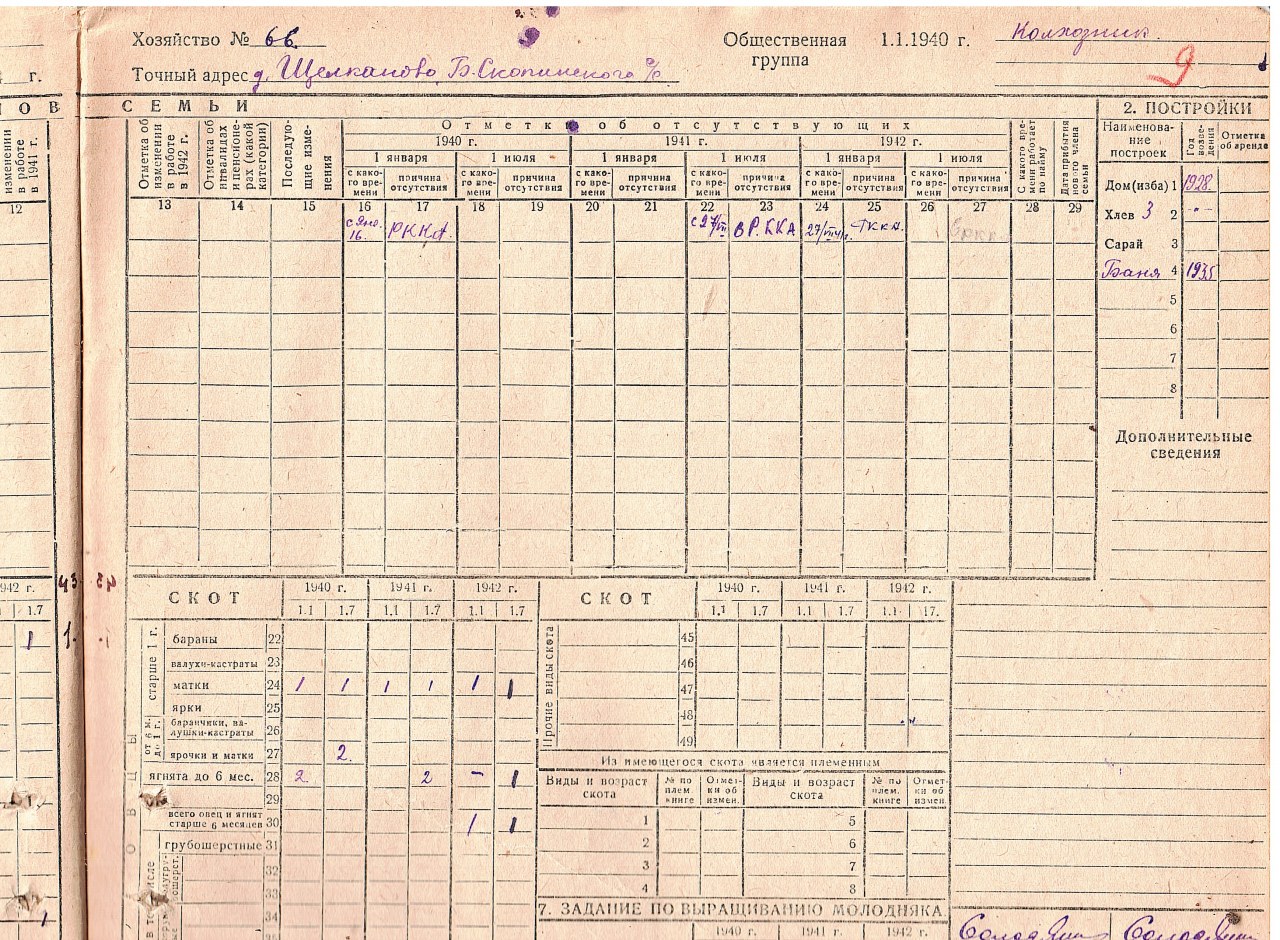 Хозяйство № 66
Общественная группа 1.1.1940 г. Колхозник.
9
Точный адрес д. Щелканово, Б.Скопинского с/с
г.
НОВ СЕМЬИ
2. ПОСТРОЙКИ
изменении в работе в 1941 г.
Отметка об изменении в работе в 1942 г.
Отметка об инвалидах и пенсионерах (какой категории)
Последующие изменения
Отметки об отсутствующих
1940 г. 1941 г. 1942 г.
1 января 1 июля 1 января 1 июля 1 января 1 июля
с какого времени причина отсутствия с какого времени причина отсутствия с какого времени причина отсутствия с какого времени причина отсутствия с какого времени причина отсутствия с какого времени причина отсутствия
С какого времени работает по найму
Дата прибытия нового члена семьи
Наименование построек
Год возведения
Отметка об аренде
12 13 14 15 16 17 18 19 20 21 22 23 24 25 26 27 28 29
16. РККА. с 27/VII В Р.ККА 27/VII РККА.
Дом(изба) 1 1928.
Хлев 3 2 -"-
Сарай 3
Баня 4 1935
5
6
7
8
Дополнительные сведения
942 г. 43
1.7
1 1
СКОТ 1940 г. 1941 г. 1942 г.
1.1 1.7 1.1 1.7 1.1 1.7
ОВЦЫ
старше 1 г.
бараны 22
валухи-кастраты 23
матки 24 1 1 1 1 1 1
ярки 25
от 6 м. до 1 г.
баранчики, валушки-кастраты 26
ярочки и матки 27 2.
ягнята до 6 мес. 28 2. 2 – 1
29
всего овец и ягнят старше 6 месяцев 30 1 1
грубошерстные 31
32
33
34
СКОТ 1940 г. 1941 г. 1942 г.
1.1 1.7 1.1 1.7 1.1 17.
Прочие виды скота
45
46
47
48
49
Из имеющегося скота является племенным
Виды и возраст скота № по плем. книге Отметки об измен. Виды и возраст скота № по плем. книге Отметки об измен.
1 5
2 6
3 7
4 8
7. ЗАДАНИЕ ПО ВЫРАЩИВАНИЮ МОЛОДНЯКА
1940 г. 1941 г. 1942 г.